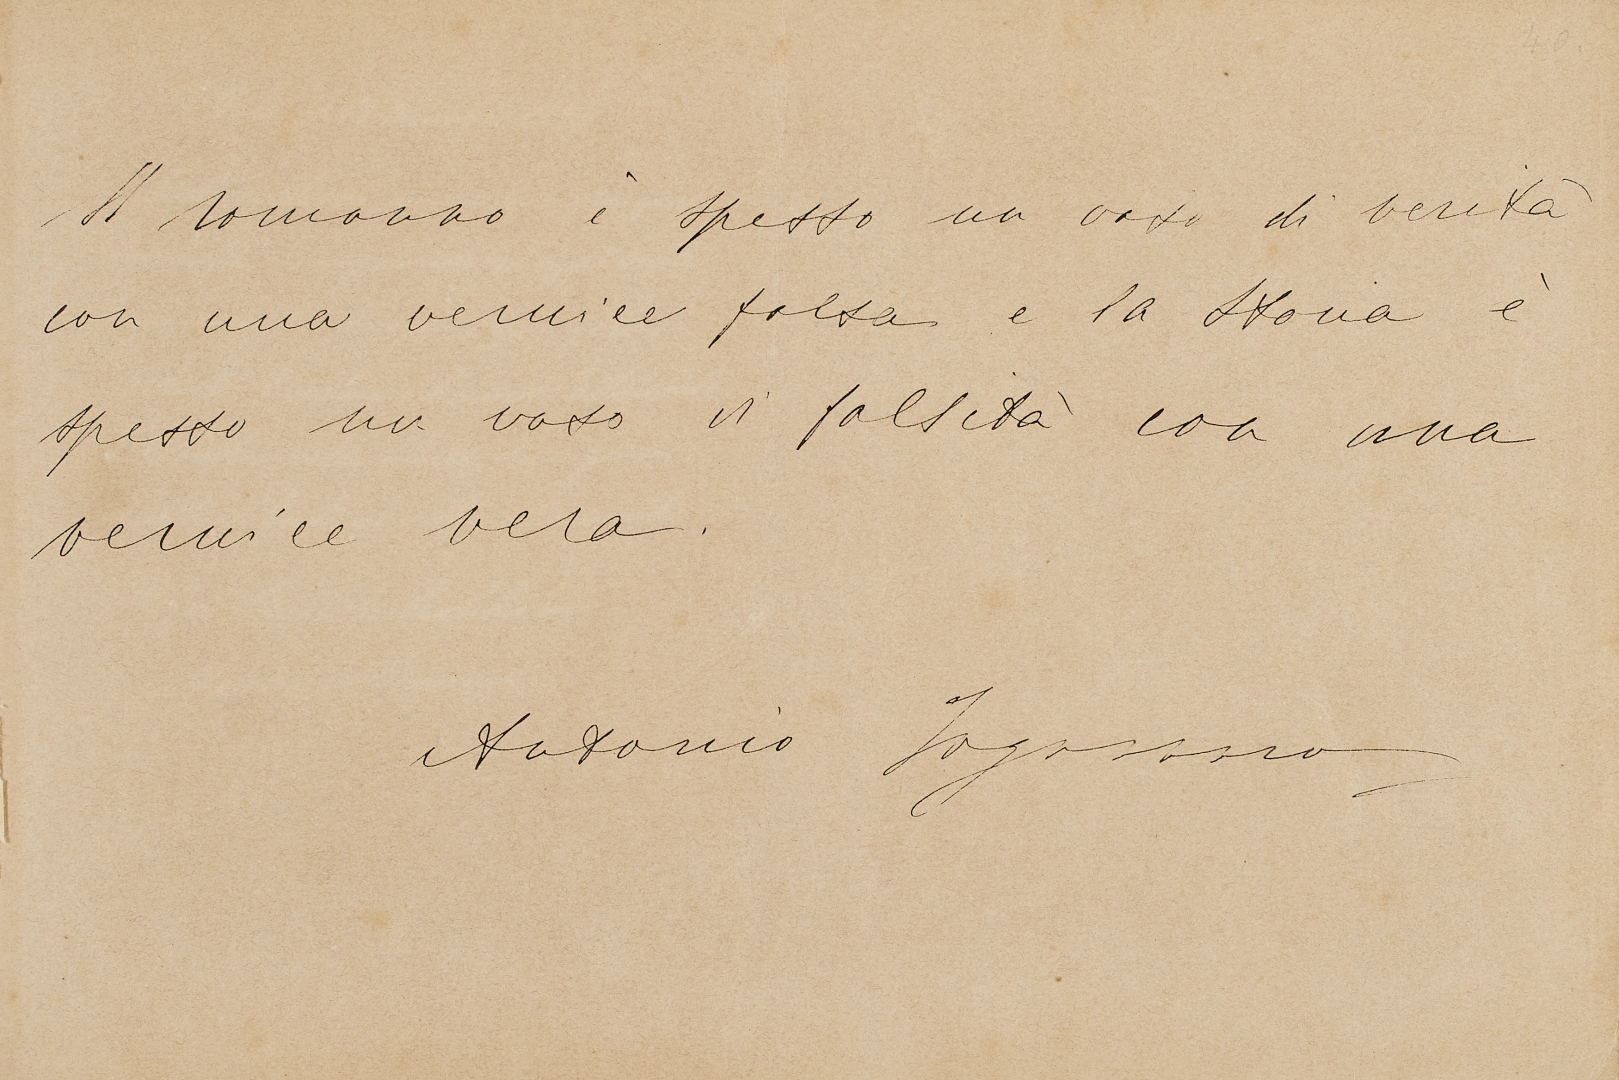 40.
Il romanzo è spesso un vaso di verità
con una vernice falsa e la storia è
spesso un vaso di falsità con una
vernice vera.
Antonio Fogazzaro